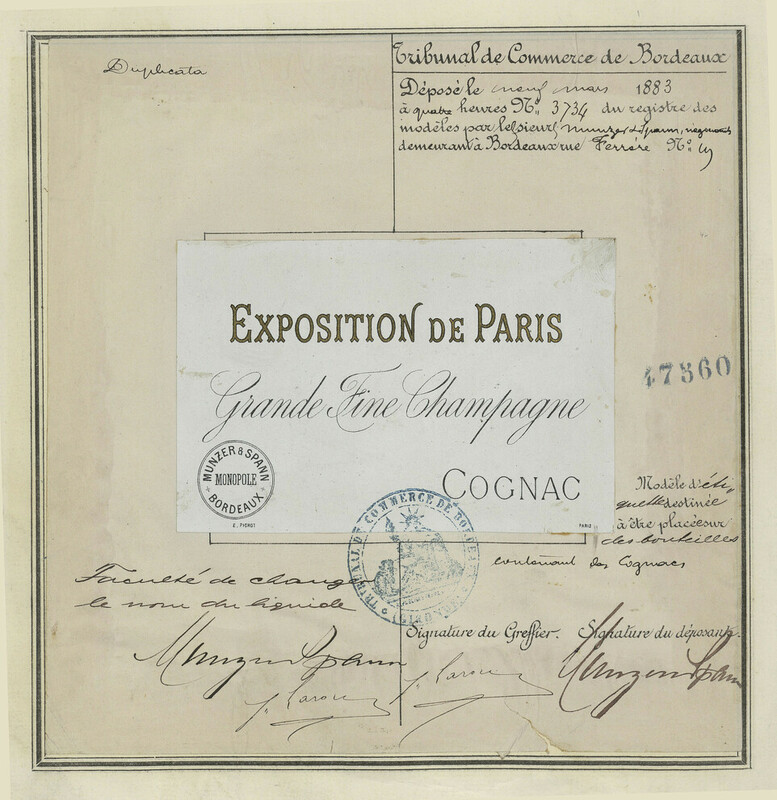 Duplicata
Tribunal de Commerce de Bordeaux
Déposé le neuf mars 1883
à quatre heures No. 3734 du registre des
modèles par le(s) sieur(s) Munzer & Spann, négociants
demeurant à Bordeaux rue Ferrère No.
EXPOSITION DE PARIS
Grande Fine Champagne
COGNAC
MUNZER & SPANN
MONOPOLE
BORDEAUX
PARIS
47560
Modèle d'éti-
quette destinée
à être placée sur
des bouteilles
contenant des Cognacs
TRIBUNAL DE COMMERCE DE BORDEAUX
Faculté de changer
le nom du liquide
Signature du Greffier. Signature du déposant.
Munzer Spann
Munzer Spann